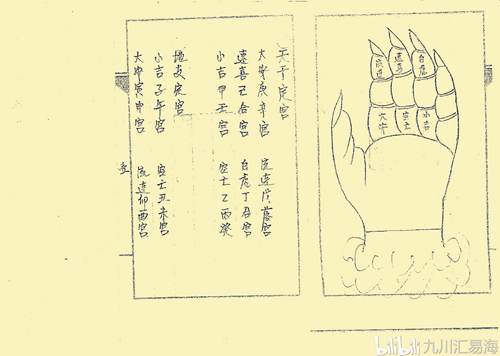 天干定宫
大安庚辛宫 流連戊
速喜己合宫 白虎丁合宫
小吉甲壬宫 空亡乙丙癸
地支定宫
小吉子午宫 空亡丑未宫
大安寅申宫 流連卯酉宫
流連
速喜
白虎
大安
空亡
小吉
bilibili 九川汇易海